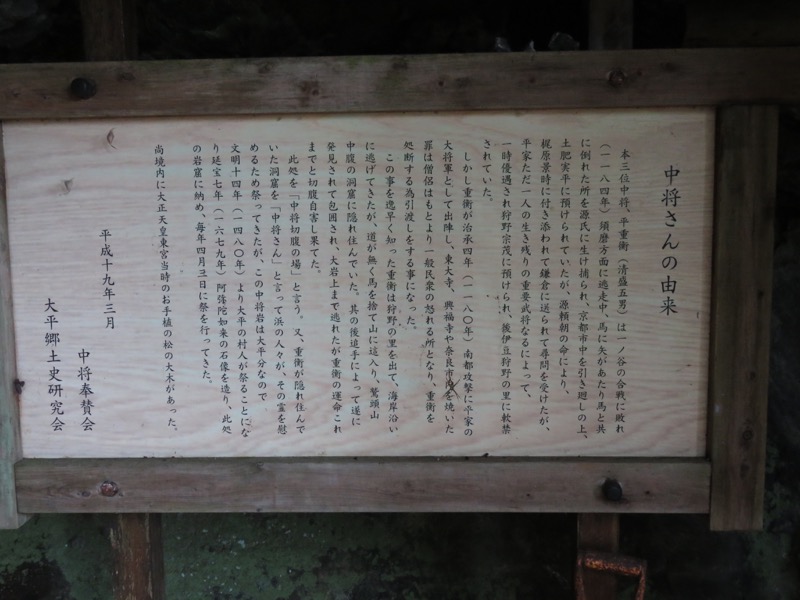 中将さんの由来
本三位中将 平重衡（清盛五男）は一ノ谷の合戦に敗れ
（一一八四年）須磨方面に逃走中、馬に矢があたり馬と共
に倒れた所を源氏に生け捕られ、京都市中を引き廻しの上、
土肥実平に預けられていたが、源頼朝の命により、
梶原景時に付き添われて鎌倉に送られて尋問を受けたが、
平家ただ一人の生き残りの重要武将なるによって、
一時優遇され狩野宗茂に預けられ、後伊豆狩野の里に軟禁
されていた。
しかし重衡が治承四年（一一八〇年）南都攻撃に平家の
大将軍として出陣し、東大寺、興福寺や奈良市内を焼いた
罪は僧侶はもとより一般民衆の怒れる所となり、重衡を
処断する為引渡しをする事になった。
この事を逸早く知った重衡は狩野の里を出て、海岸沿い
に逃げてきたが、道が無く馬を捨て山に這入り、鷲頭山
中腹の洞窟に隠れ住んでいた。其の後追手によって遂に
発見されて包囲され、大岩上まで逃れたが重衡の運命これ
までと切腹自害し果てた。
此処を「中将切腹の場」と言う。又、重衡が隠れ住んで
いた洞窟を「中将さん」と言って浜の人々が、その霊を慰
めるため祭ってきたが、この中将岩は大平分なので
文明十四年（一四八〇年）より大平の村人が祭ることにな
り延宝七年（一六七九年）阿弥陀如来の石像を造り、此処
の岩窟に納め、毎年四月三日に祭を行ってきた。
尚境内に大正天皇東宮当時のお手植の松の大木があった。
平成十九年三月
中将奉賛会
大平郷土史研究会